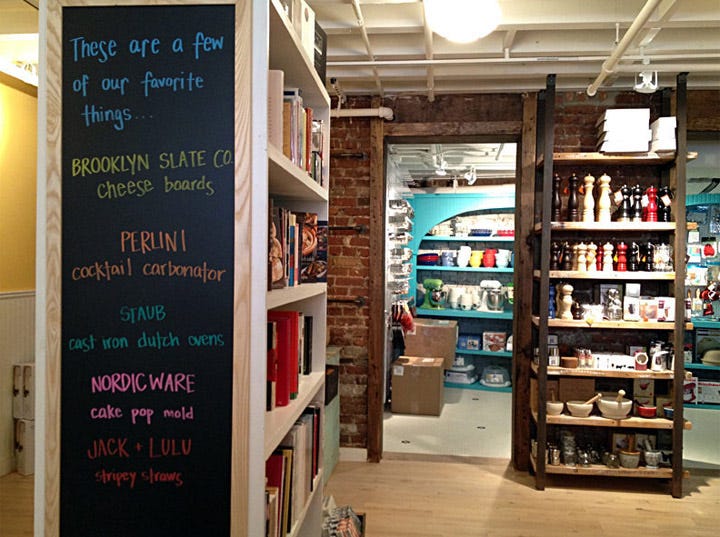 These are a few
of our favorite
things...
BROOKLYN SLATE CO.
cheese boards
PERLINI
cocktail carbonator
STAUB
cast iron dutch ovens
NORDICWARE
cake pop mold
JACK + LULU
stripey straws